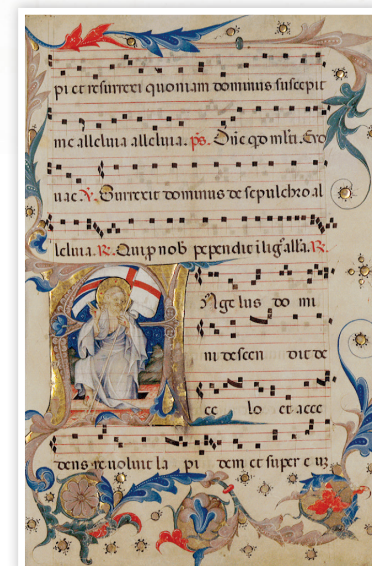 pi et resurrexi quoniam dominus suscepit
me alleluia alleluia. ps. Dñe qd mlti. Evo
uae. V. Surrexit dominus de sepulchro al
leluia. R. Qui p nob pependit i lig° alla. R.
Nge lus do mi
ni descen dit de
ce lo et acce
dens re voluit la pi dem et super e uz